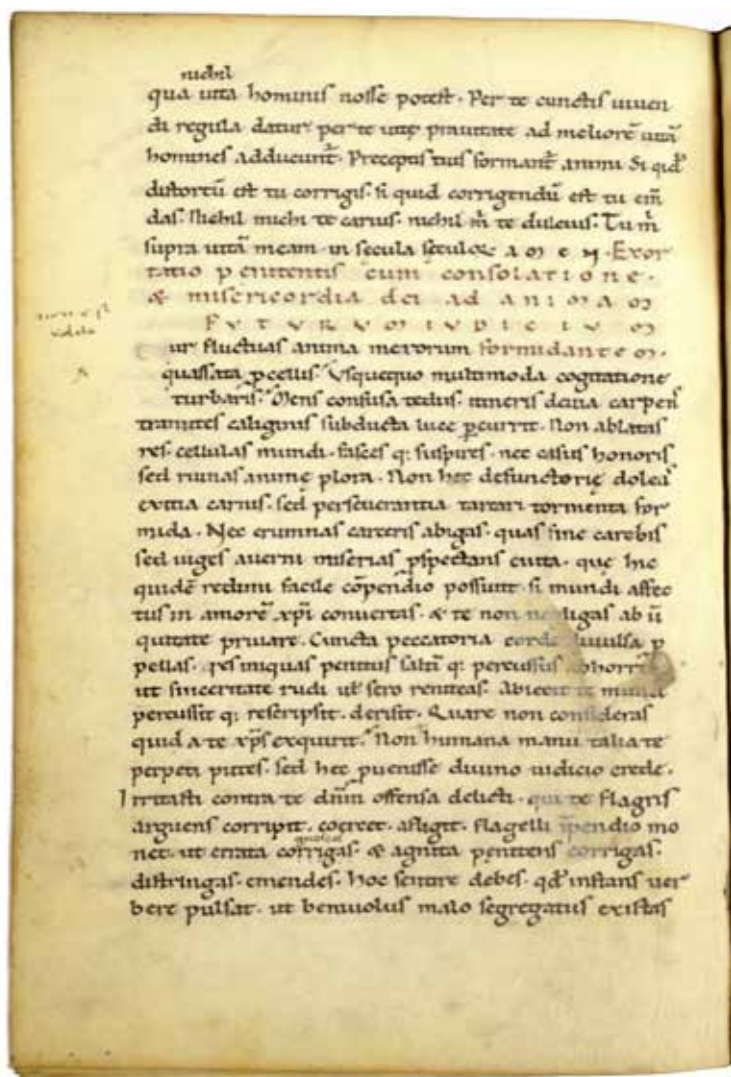 nichil
qua uita hominis nosse potest. Per te cunctis uiuen
di regula datur per te uitę prauitate ad meliorē uitā
homines adducunt̄. Preceptis tuis formant̄ animi Si qid
distortū est tu corrigis. si quid corrigendū est tu em̄
das. Nichil michi te carius. nichil m̄ te dulcius. Tu m̄
supra uitā meam. in secula sc̄culoꝝ a m e n. Exor
tatio penitentis cum consolatione.
& misericordia dei ad animam
FVTVRVM IVDICIVM
ur fluctuas anima merorum formidantem.
quassata ꝓcellis. Vsquequo multimoda cogitatione
turbaris. Mens confusa tediis. itineris deuia carpen̄
tramites caliginis subducta luce ꝑcurrit. Non ablatas
res. cellulas mundi. fasces q; suspires. nec casus honoris
sed ruinas animę plora. Non hec defunctorię doleas
exitia carius. sed perseuerantia tartari tormenta for
mida. Nec erumnas carceris abigas. quas fine carebis
sed iuges auerni miserias ꝑspectans euita. que hic
quidē redimi facile cōpendio possunt. si mundi affec
tus in amorē xp̄i conuertas. & te non negligas ab ii
quitate priuare. Cuncta peccatoria corde diuulsa ꝓ
pellas. res iniquas penitus saltī q; percussus abhorre
ut sinceritate rudi ul̄ sero reniteas. Abiecit te
percussit q; rescripsit. derisit. Quare non consideras
quid a te xp̄s exquirit. Non humana manu talia te
perpeti putes. sed hec ꝓuenisse diuino iudicio crede.
Irritasti contra te dn̄m offensa delicti. qui te flagris
arguens corripit. cocrcet. afligit. flagelli īpendio mo
net. ut errata corrigas. & agnita penitens corrigas.
distringas. emendes. hoc sentire debes. qd̄ instans uer
bere pulsat. ut beniuolus malo segregatus existas